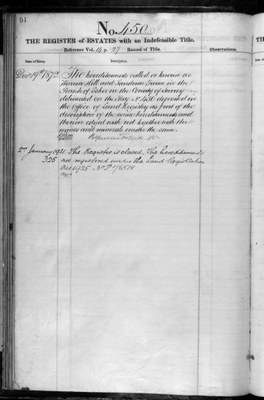 61
No. 450
THE REGISTER of ESTATES with an Indefeasible Title.
Reference Vol. 97 Record of Title.
Date of Entry. Description. Observations.
Decr 19th 1872 The hereditaments called or known as
Hill and Farm in the
Parish of Esher in the County of Surrey
delineated on the Map No. 450 deposited in
the Office of Land Registry as part of the
description of the said hereditaments and
thereon edged with red together with the
mines and minerals under the same.
2nd January 1931. The Register is closed. The hereditaments
325 are registered under the Land Registration
Act 1925